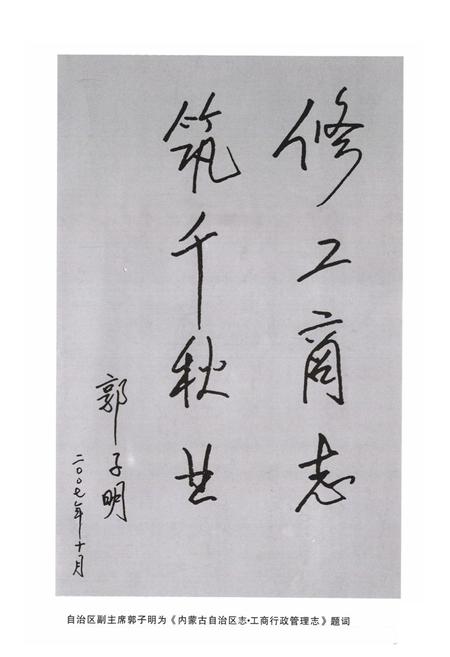 修工商志
筑千秋业
郭子明
二〇〇七年十月
自治区副主席郭子明为《内蒙古自治区志•工商行政管理志》题词